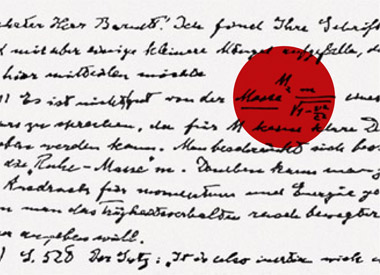 ehrter Herr Barnett! Ich fand Ihre Schrift
mir aber einige kleinere Mängel aufgefallen, d
hier mitteilen möchte
) Es ist nicht gut von der Masse M = m/√(1-v²/c²) eines
ers zu sprechen, da für M keine klare D
eben werden kann. Man beschränkt sich bes
die „Ruhe-Masse" m. Daneben kann man j
Ausdruck für momentum und Energie ge
n man das Trägheitsverhalten rasch bewegter
er angeben will.
) S. 520 Der Satz: „It is also inertia